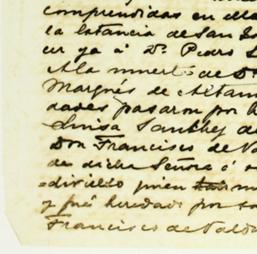 comprendidas en ella
la Estancia de San Is
cer ya á Dn. Pedro S
A la muerte de Dn.
Marqués de Altam
dades pasaron por h
Luisa Sanchez d
Don Francisco de Va
de dicha Señora ó s
dividido quien m
y fué heredado por su
Francisco de Valdi